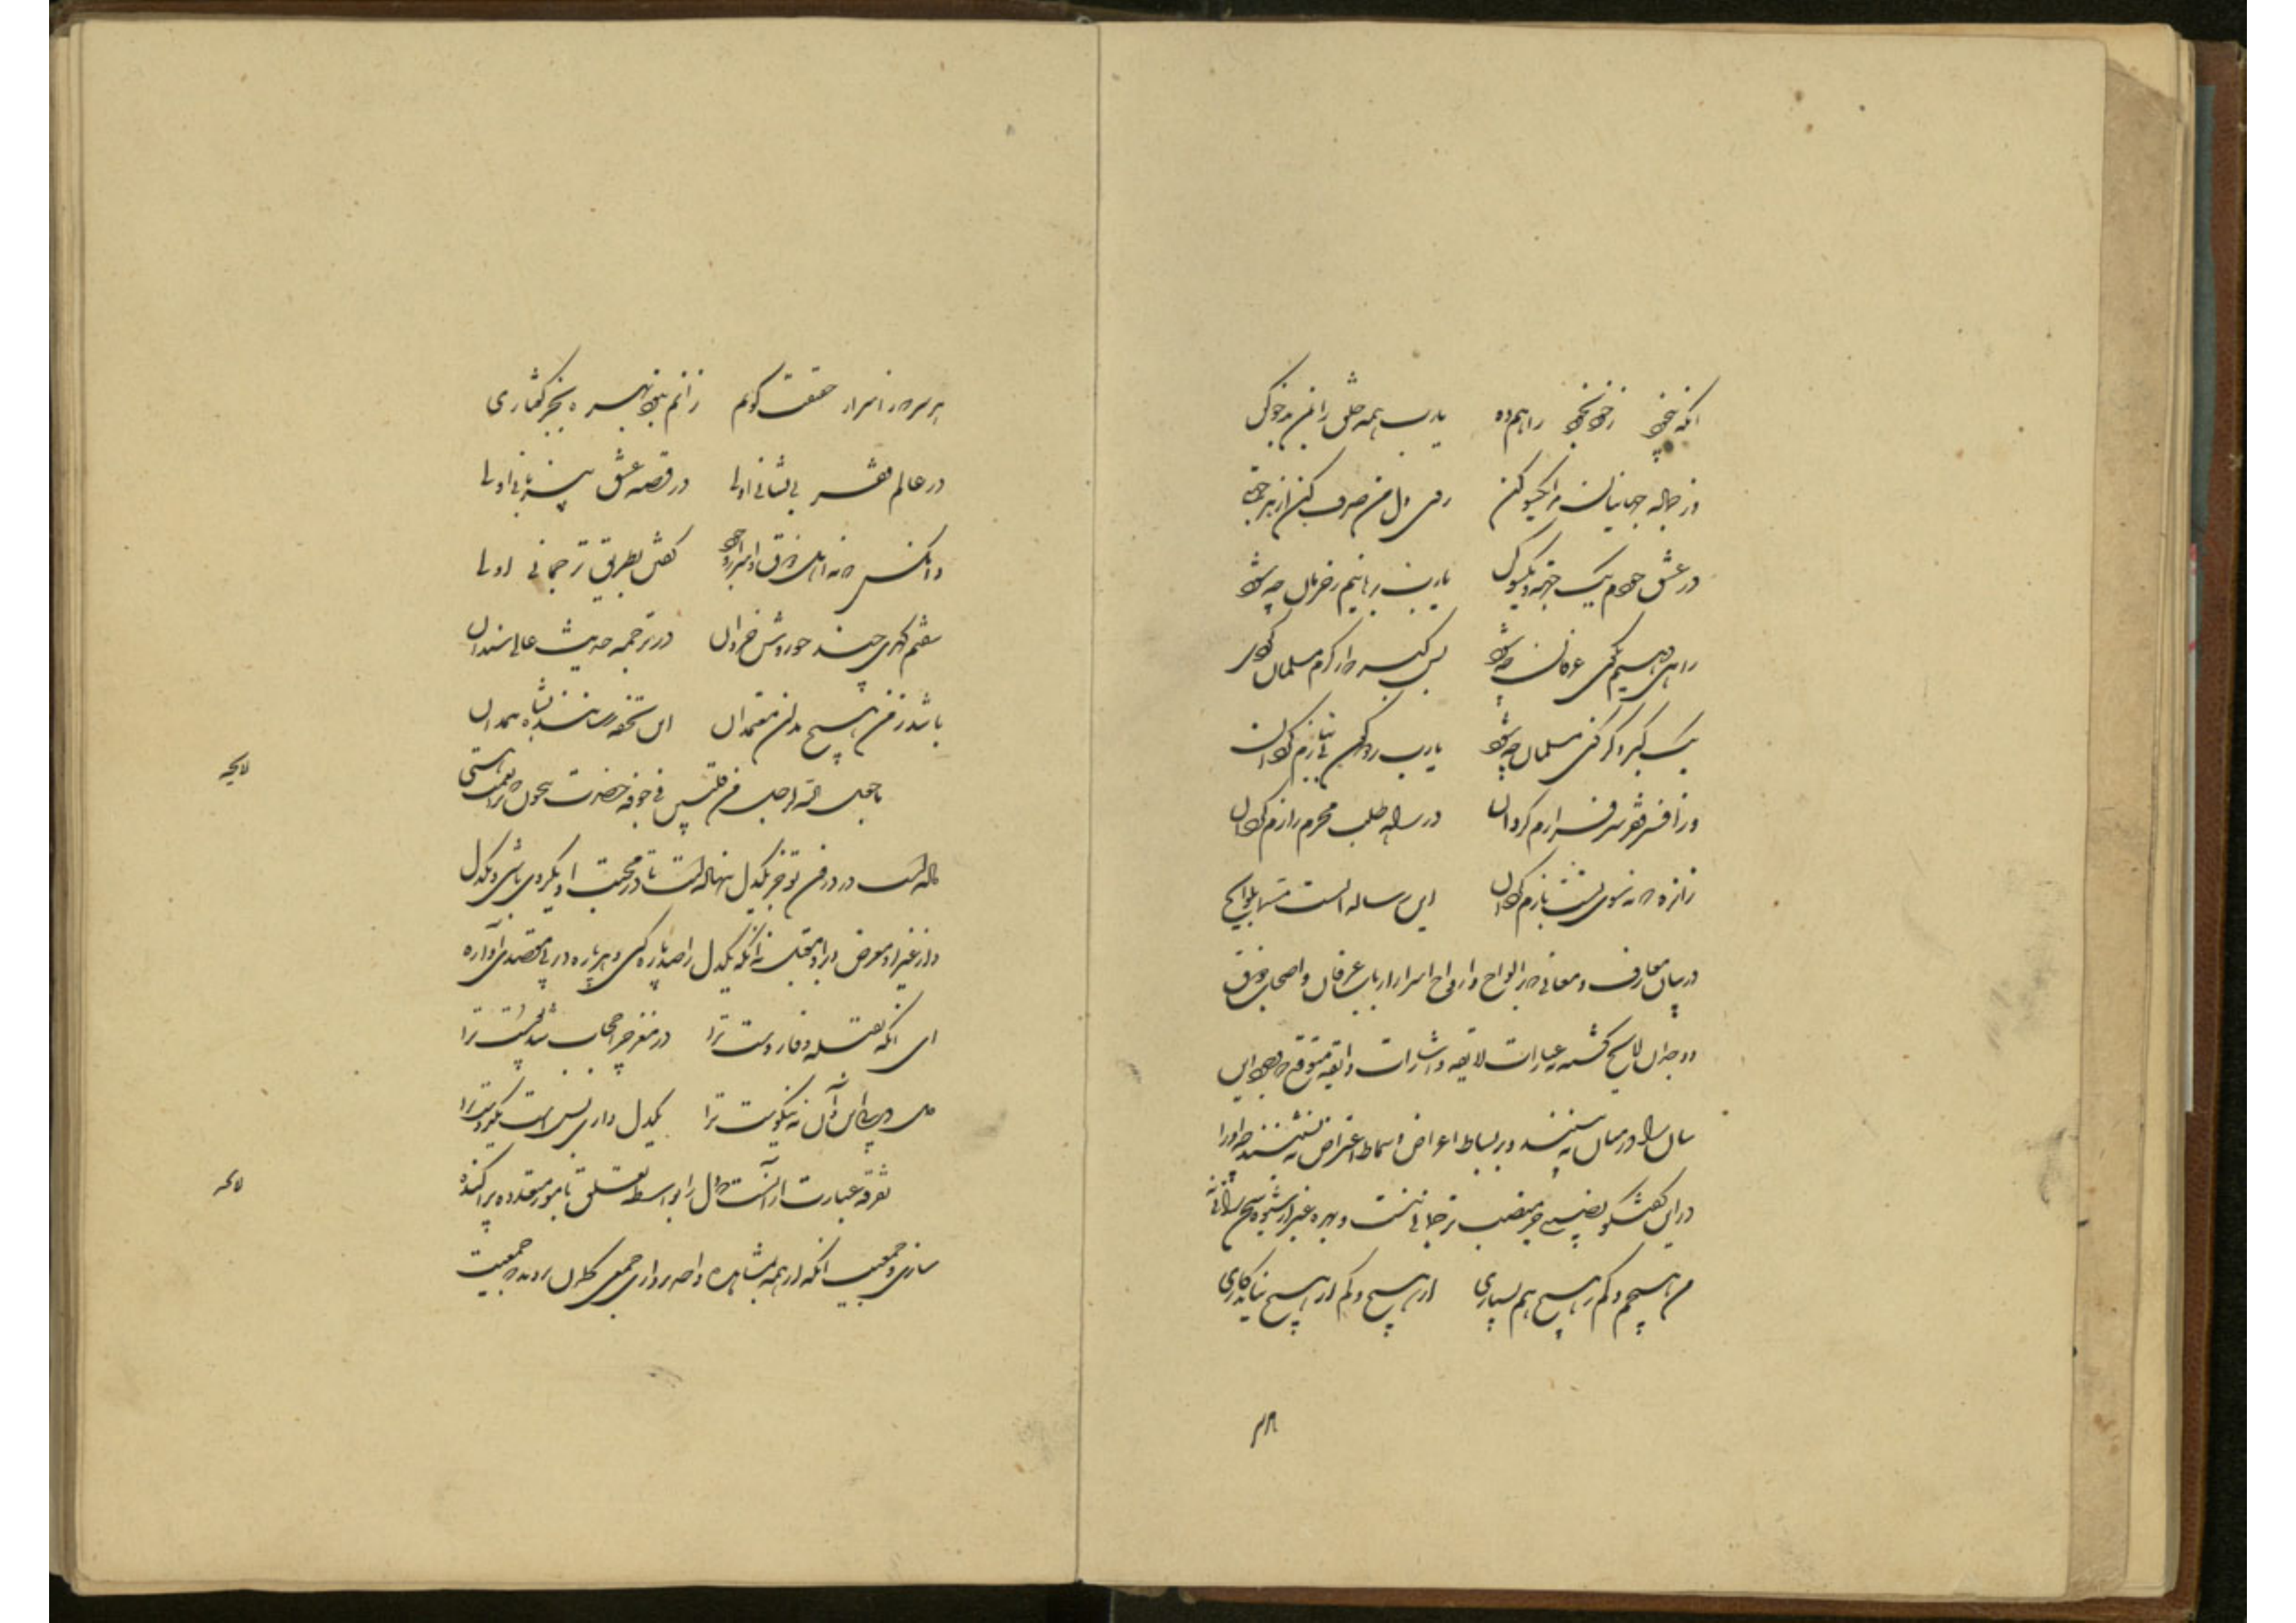 آنگه بیخود ز خود بخود راهم ده یا رب همه خلق را بمن بدخو کن
وز جمله جهانیان مرا یکسو کن روی دل من صرف کن از هر جهتی
در عشق خودم یک جهت و یکرو کن یا رب برهانیم ز حرمان چه شود
راهی دهیم بکوی عرفان چه شود بس گبر که از کرم مسلمان کردی
یک گبر دگر کنی مسلمان چه شود یا رب ز دو کون بی نیازم گردان
وز افسر فقر سرفرازم گردان در راه طلب محرم رازم گردان
زان ره که نه سوی تست بازم گردان این رساله ایست مسمی بلوایح
در بیان معارف و معانی که بر الواح و ارواح اسرار ارباب عرفان و اصحاب ذوق
و وجدان لایح گشته بعبارات لایقه و اشارات رایقه متوقع که وجود این
بیان را در میان نه بینند و بر بساط اعراض و سماط اعتراض ننشینند چه او را
در این گفتگو نصیبی جز منصب ترجمانی نیست و بهره غیر از شیوه سخن رانی نه
من هیچم و کم ز هیچ هم بسیاری از هیچ و کم از هیچ نیاید کاری
هر سر
هر سر که ز اسرار حقیقت گویم زانم نبود بهره بجز گفتاری
در عالم فقر بی نشانی اولی در قصه عشق بی زبانی اولی
زانکس که نه اهل ذوق و اسرار بود گفتن بطریق ترجمانی اولی
سفتم گهری چند چو روشن خردان در ترجمه حدیث عالی سندان
باشد ز من هیچ مدان معتمدان این تحفه رسانند بشاه همدان
لایحه
ما جعل الله لرجل من قلبین فی جوفه حضرت بیچون که ترا نعمت هستی
داده است در درون تو جز یکدل ننهاده است تا در محبت او یکروی باشی و یکدل
و از غیر او معرض و بر او مقبل نه آنکه یکدل را صد پاره کنی و هر پاره در پی مقصدی آواره
ای آنکه بقبله وفا روست ترا در مغز چرا حجاب شد پوست ترا
دل در پی این و آن نه نیکوست ترا یکدل داری بس است یکدوست ترا
لایحه
تفرقه عبارت از آنست که دل را بواسطه تعلق بامور متعدده پراکنده
سازی و جمعیت آنکه از همه بمشاهده واحد پردازی جمعی گمان بردند که جمعیت